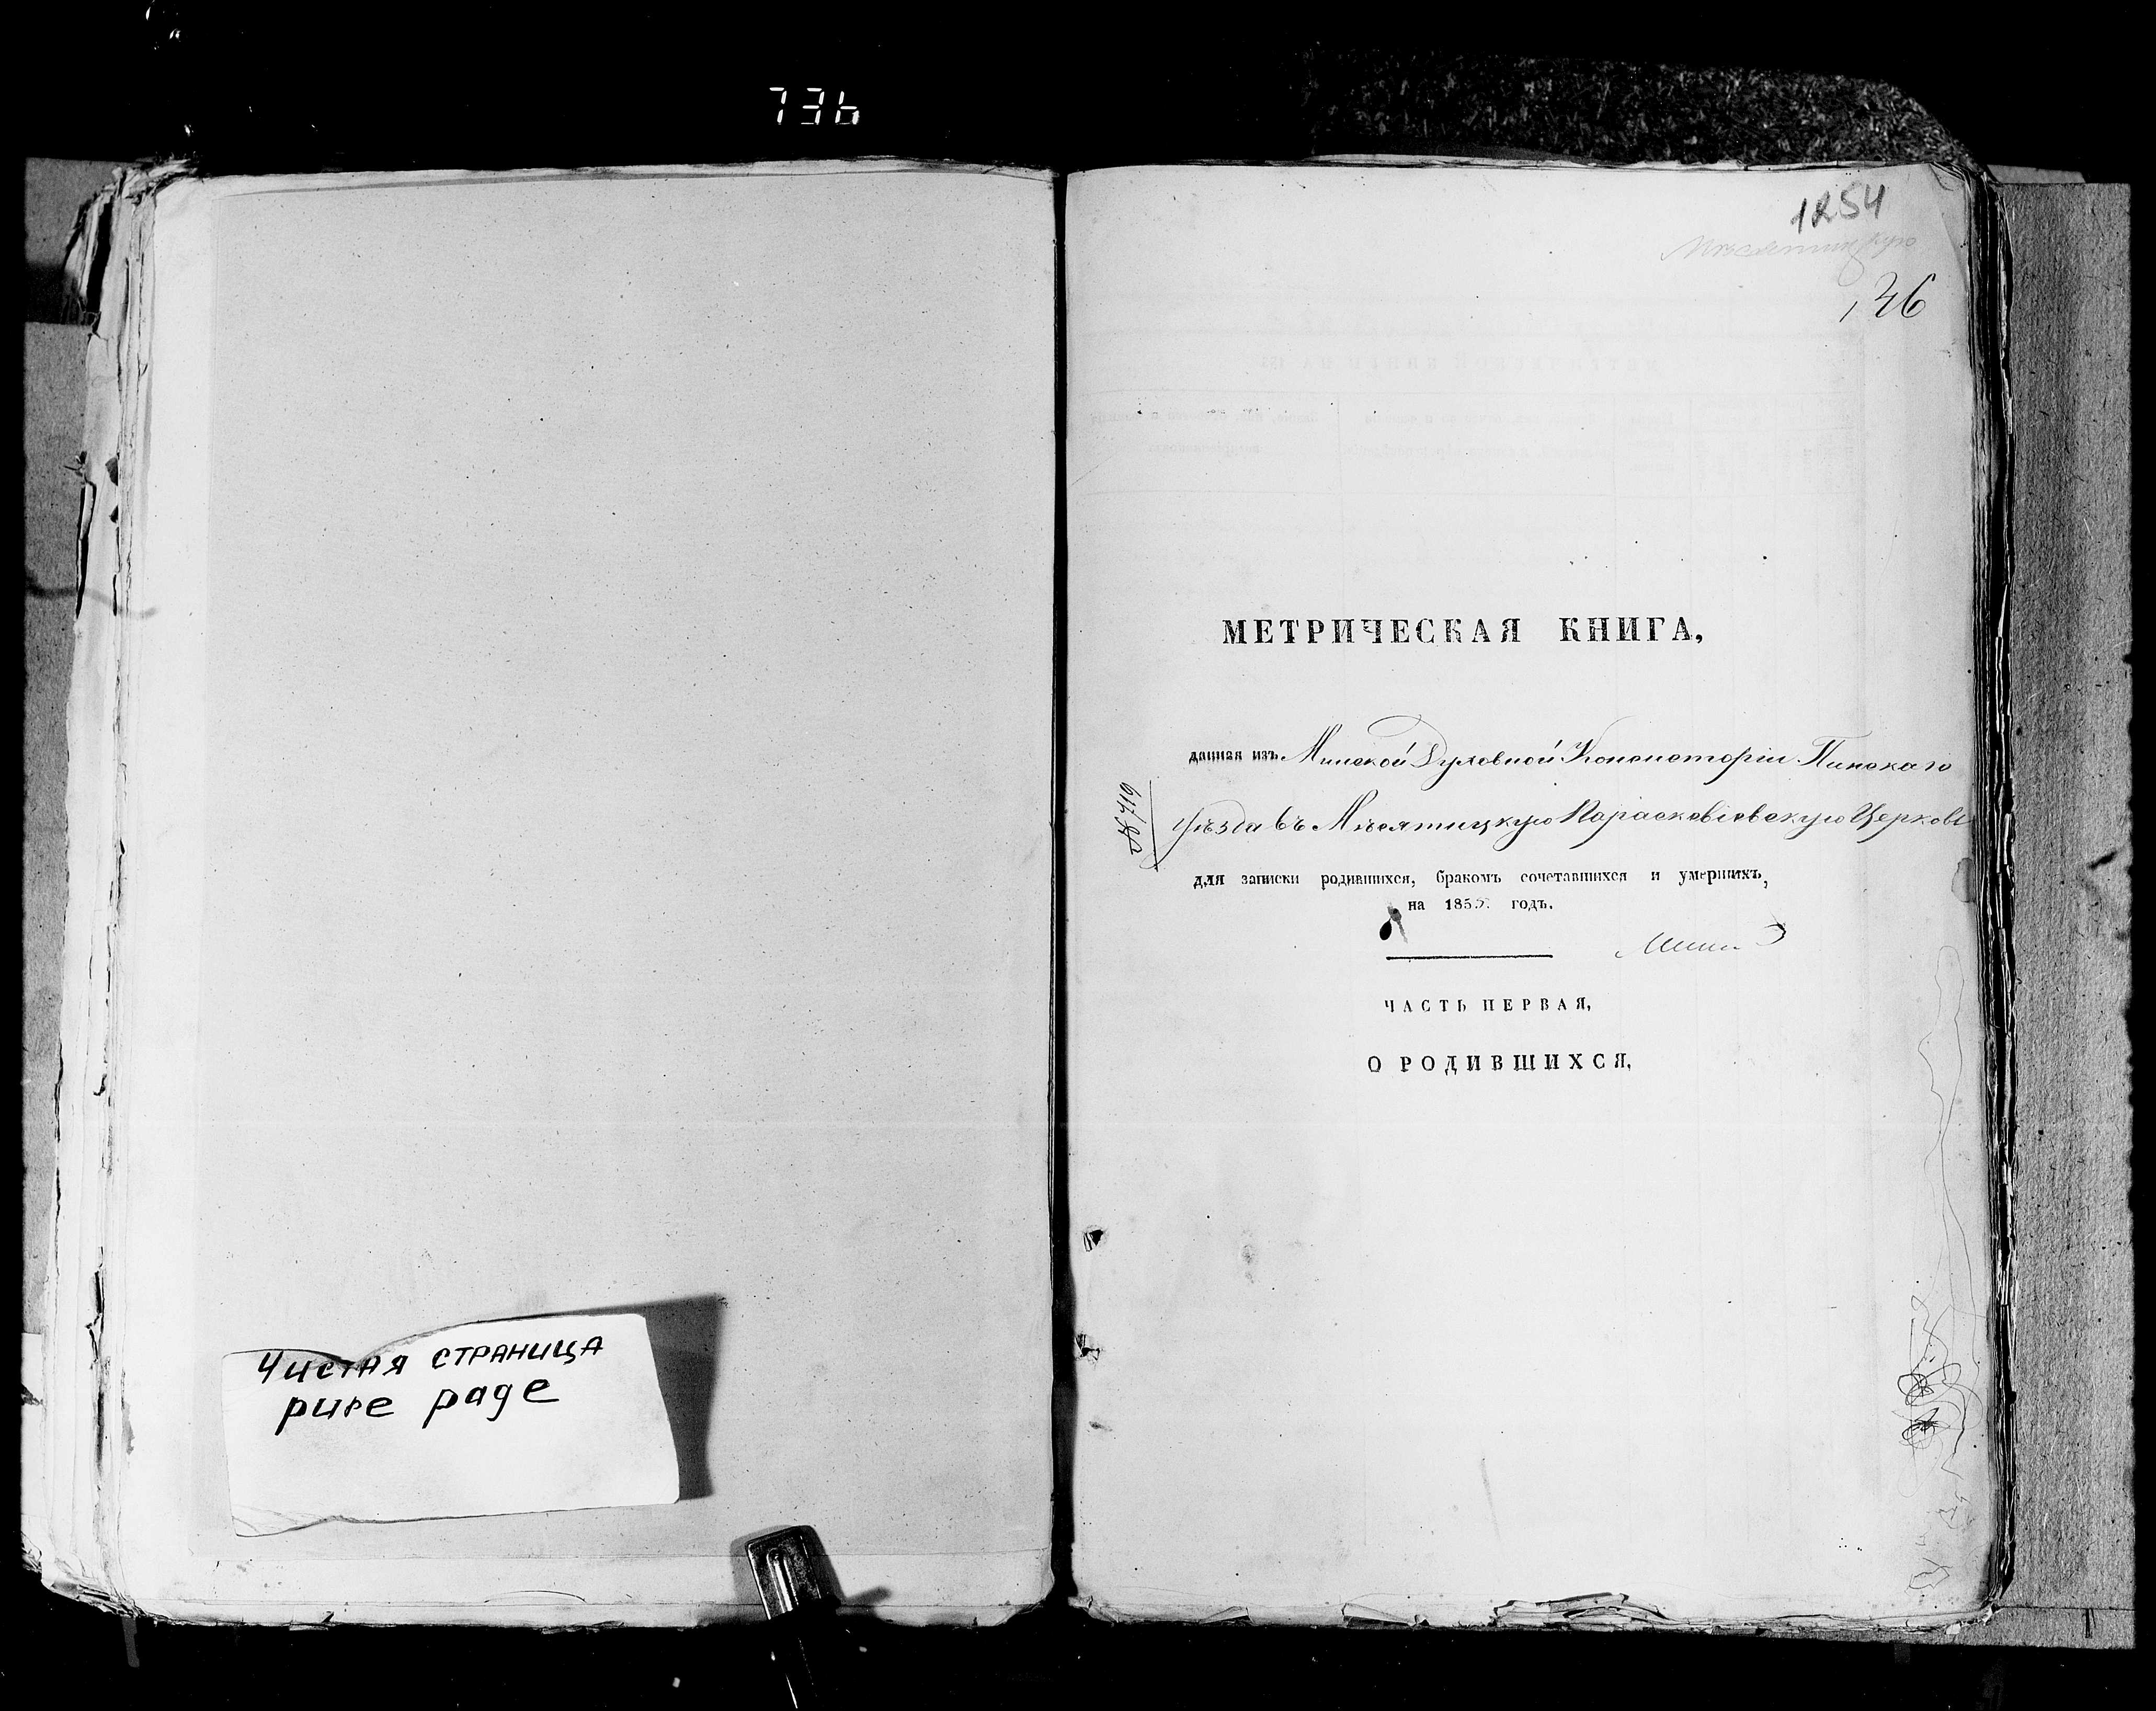 736
Чистая страница
pure page
1254
Мѣсятицкую
136
МЕТРИЧЕСКАЯ КНИГА,
данная изъ Минской Духовной Консисторіи Пинскаго
уѣзда въ Мѣсятицкую Параскевіевскую Церковь
№ 419
для записки родившихся, бракомъ сочетавшихся и умершихъ,
на 1855. годъ.
ЧАСТЬ ПЕРВАЯ,
О РОДИВШИХСЯ,